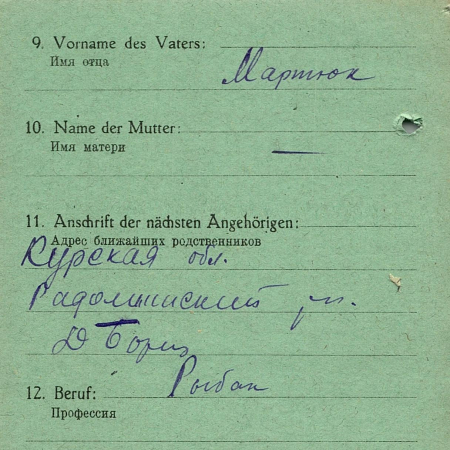 9. Vorname des Vaters:
Имя отца
Мартюк
10. Name der Mutter:
Имя матери
—
11. Anschrift der nächsten Angehörigen:
Адрес ближайших родственников
Курская обл.
Радоминский
Д
12. Beruf: Рыбак
Профессия